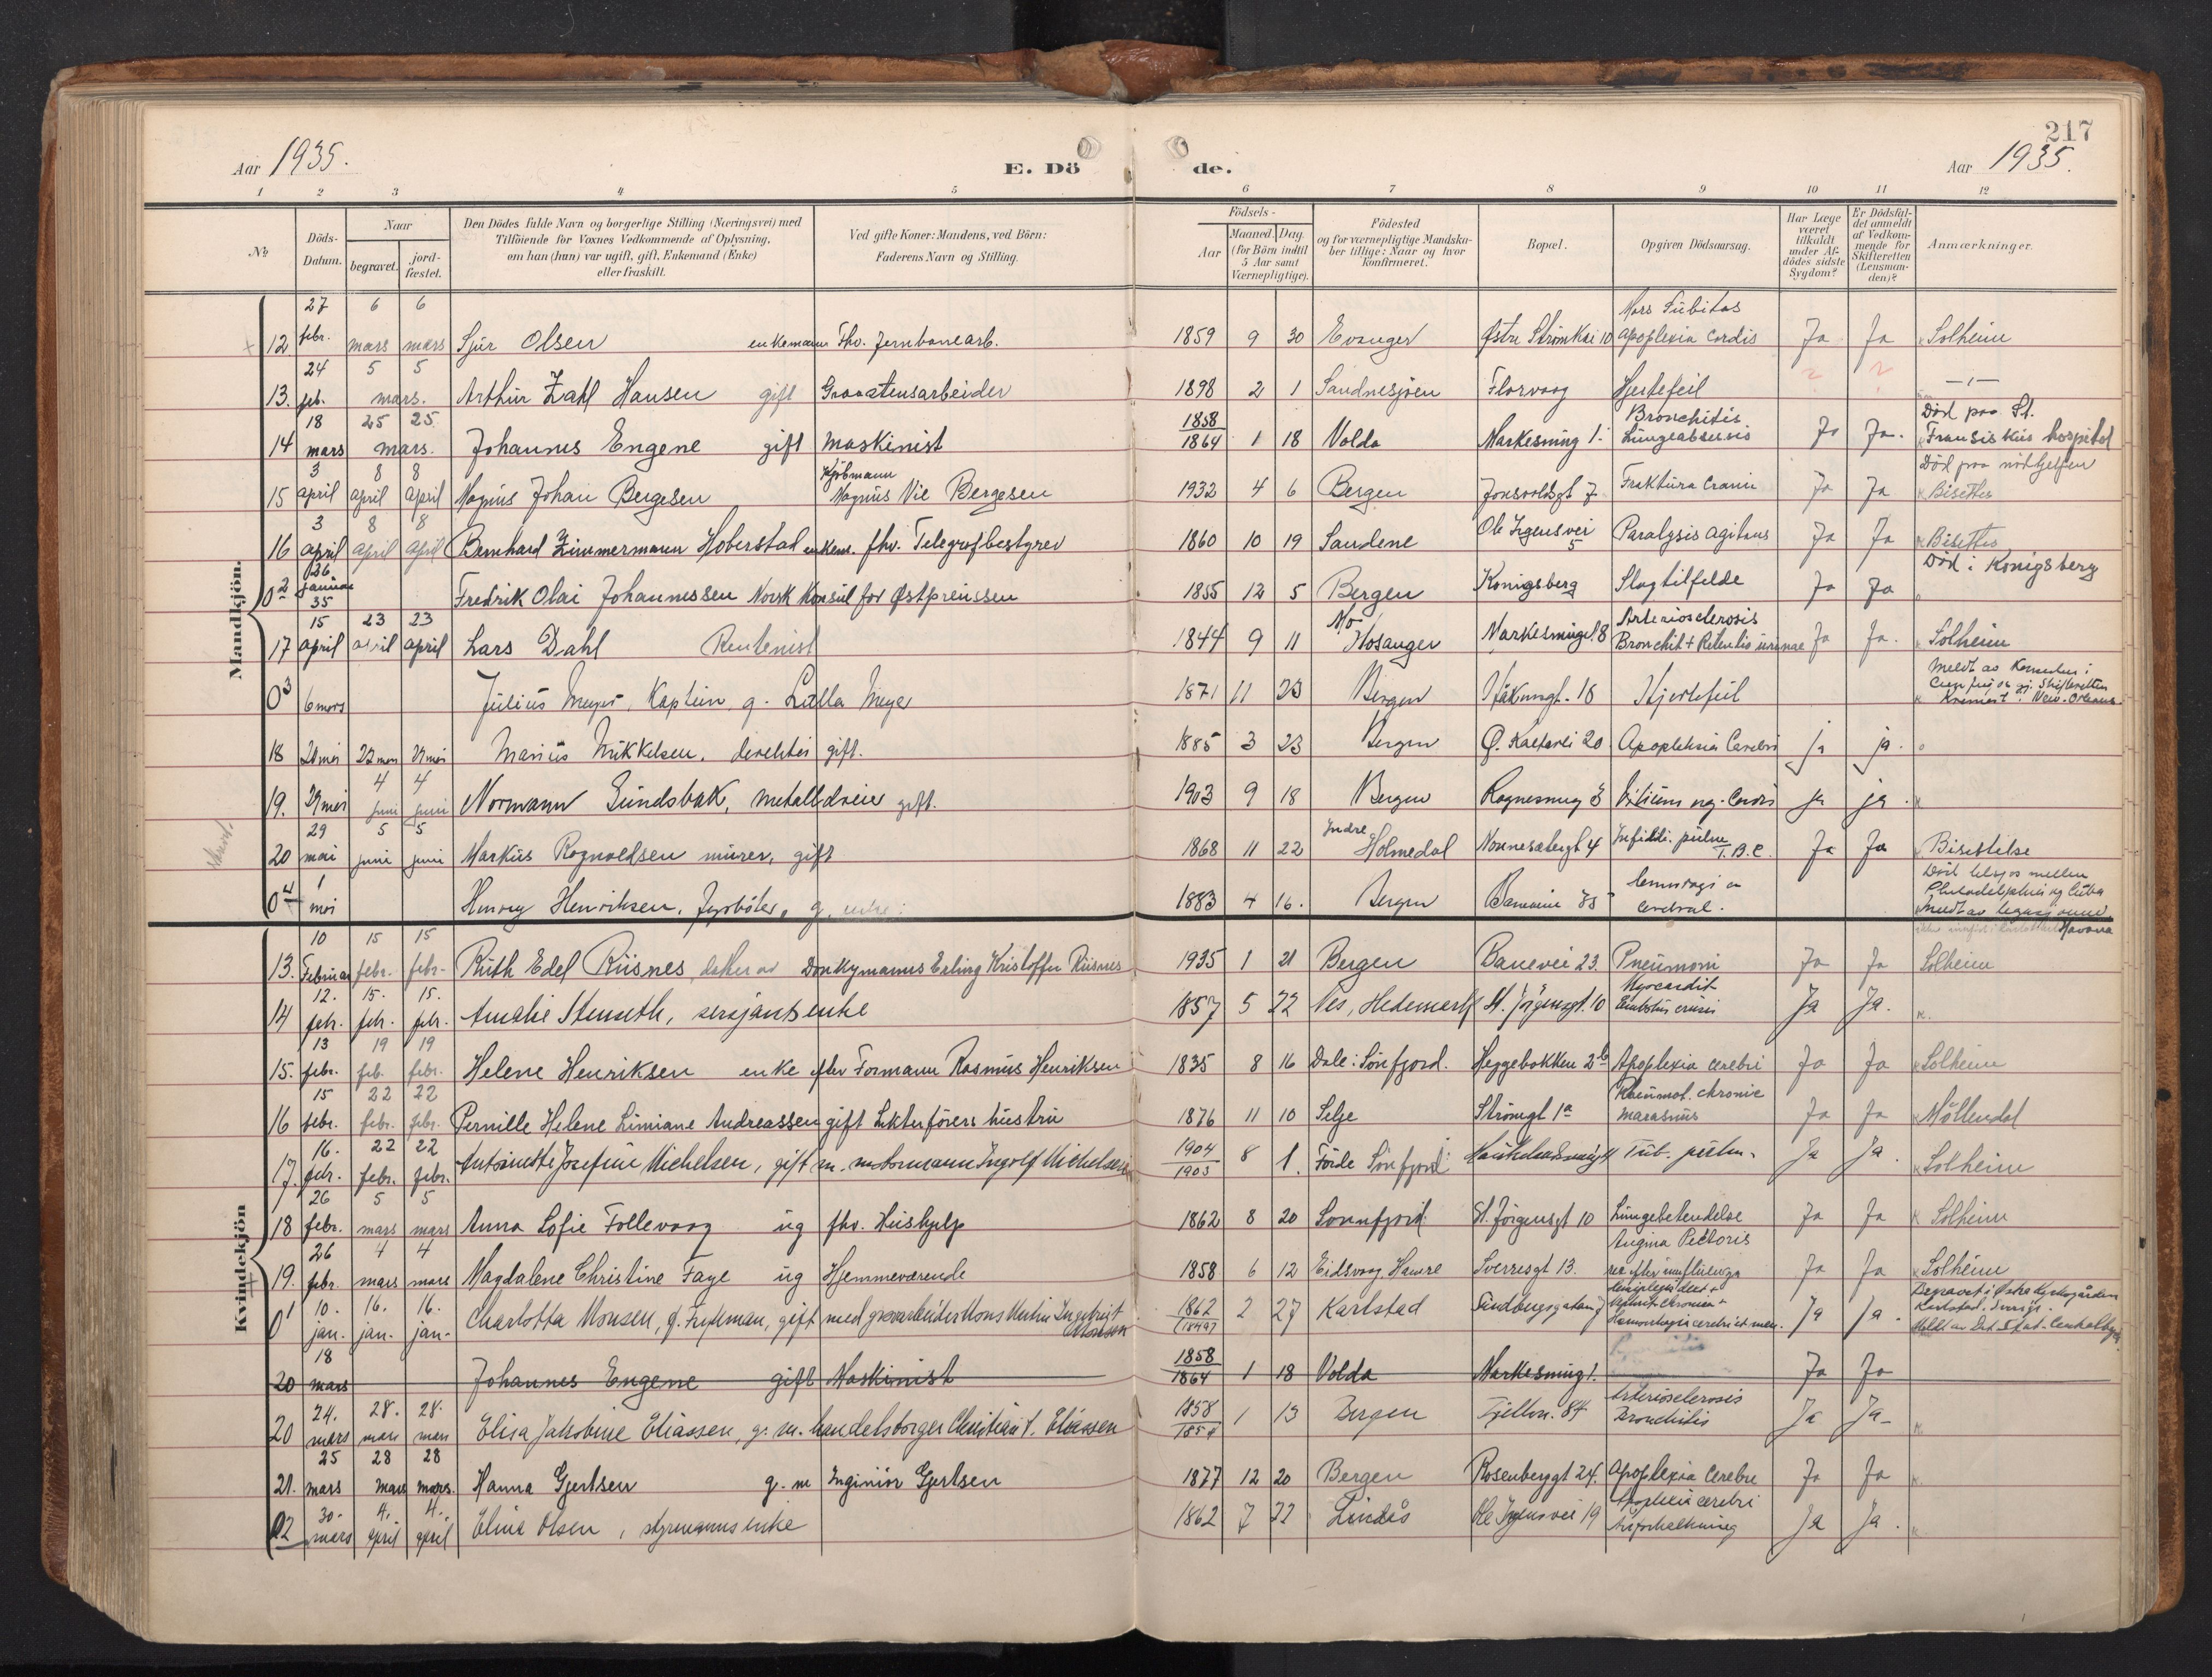 217
Aar 1935.
E. Döde.
Aar 1935.
1 2 3 4 5 6 7 8 9 10 11 12
No
Döds-Datum.
Naar
begravet.
jordfæstet.
Den Dödes fulde Navn og borgerlige Stilling (Næringsvei) med
Tilföiende for Voxnes Vedkommende af Oplysning,
om han (hun) var ugift, gift, Enkemand (Enke)
eller fraskilt.
Ved gifte Koner: Mandens, ved Börn:
Faderens Navn og Stilling.
Födsels-
Aar
Maaned. Dag.
(for Börn indtil
5 Aar samt
Værnepligtige).
Födested
og for værnepligtige Mandskaber tillige: Naar og hvor
konfirmeret.
Bopæl.
Opgiven Dödsaarsag.
Har Læge
været
tilkaldt
under Afdödes sidste
Sygdom?
Er Dödsfaldet anmeldt
af Vedkommende for
Skifteretten
(Lensmanden)?
Anmærkninger.
Mandkjön.
12 27 febr. 6 mars 6 mars Sjur Olsen enkemann Fhv. Jernbanearb. 1859 9 30 Evanger Østre Strømkai 10 Mors Subitas Apoplexia Cordis Ja Ja Solheim
13. 24 feb. 5 5 mars. Arthur Zahl Hansen gift Graastensarbeider 1898 2 1 Sandnesjøen Florvaag Hjertefeil — " —
14 18 mars 25 25 mars. Johannes Engene gift maskinist 1858 1864 1 18 Volda Markesmug 1. Bronchitis. Lungeabscess Ja Ja. Död paa St. Fransiskus hospital
15 3 april 8 april 8 april Magnus Johan Bergesen Kjöbmann Magnus Vie Bergesen 1932 4 6 Bergen Jonsvoldsgt 7 Fraktura Cranii Ja Ja Död paa nödhjelpen Bisettes
16 3 april 8 april 8 april Bernhard Zimmermann Hoberstad enkem. fhv. Telegrafbestyrer 1860 10 19 Sandene Ole Irgensvei 5 Paralysis agitans Ja Ja Bisettes
0 2 26 januar 35 Fredrik Olai Johannessen Norsk Konsul for Østpreussen 1855 12 5 Bergen Konigsberg Slagtilfelde Ja Ja Död i Konigsberg
17 15 april 23 april 23 april Lars Dahl Rentenist 1844 9 11 Mo Hosanger Markesmuget 8 Arteriosclerosis Bronchit + Retentio urinae Ja Ja. Solheim
0 3 6 mars Julius Meyer, Kaptein g. Lalla Meyer 1871 11 23 Bergen 18 Hjertefeil Meldt av New-Orleans.
18 21 mei 27 mei Marius Mikkelsen, direktör gift. 1885 3 23 Bergen Ø. 20 Apopleksia Cerebri ja ja.
19. 29 mei 4 juni 4 juni Normann Sundsbak, metalldreier gift. 1903 9 18 Bergen Vitium org. Cordis ja ja
20 29 mai 5 juni 5 juni Markus Rognvoldsen murer, gift 1868 11 22 Indre Holmedal Nonnesætergt 4 pulm. T.B.C. Ja Ja Bisettelse
0 4 1 mei Henry Henriksen, fyrböter, g. 1883 4 16. Bergen cerebral. Död tilsjøs mellem Philadelphia og Cuba Meldt av Havana
Kvindekjön
13. 10 Februar 15 febr. 15 febr. Ruth Edel Riisnes, datter av Donkymanns Erling Kristoffer Riisnes 1935 1 21 Bergen Banevei 23. Pneumoni Ja Ja Solheim
14 12. febr. 15. febr. 15. febr. Amalie Stenseth, sersjants enke 1857 5 22 Nes, Hedemark St. Jörgensgt. 10 Myocardit Ja Ja.
15. 13 febr. 19 feb. 19 febr. Helene Henriksen enke efter Formann Rasmus Henriksen 1835 8 16 Dale i Sönfjord. Heggebakken 2b Apoplexia cerebri Ja Ja Solheim
16 15 febr. 22 febr. 22 febr. Pernille Helene Andreassen gift Lekterförers hustru 1876 11 10 Selje Strömgt 1a Rheumat. chronic marasmus Ja Ja Möllendal
17. 16. febr. 22 febr. 22 febr. Antoinette Josefine Michelsen, gift m. motormann Ingolf Michelsen 1904 1905 8 1. Förde Sönfjord Tub. pulm. Ja Ja. Solheim
18 26 febr. 5 mars 5 mars Anna Sofie Follevaag ug fhv. Hushjelp 1862 8 20 Sönnfjord St. Jörgensgt 10 Lungebetendelse Ja Ja Solheim
19. 26 febr. 4 mars 4 mars Magdalene Christine Faye ug Hjemmeværende 1858 6 12 Eidsvaag Hamre Sverresgt 13. Angina Pectoris efter influenza Ja Ja Solheim
0 1 10. jan. 16. jan. 16. jan. Charlotta Monsen, gift med Mons Martin Ingebrigt Monsen 1862 2 27 Karlstad Ja Ja. Begravet i Østra Kyrkogården Karlstad, Sverige.
20 18 mars Johannes Engene gift Maskinist 1858 1864 1 18 Volda Markesmug 1. Ja Ja
20 24. mars 28. mars 28. mars Elisa Jakobine Eliassen, g. m. handelsborger Christian F. Eliassen 1858 1854 1 13 Bergen Fjellvn. 84 Arteriosclerosis Bronchitis Ja Ja
21. 25 mars 28 mars 28 mars. Hanna Gjertsen g. m Inginiör Gjertsen 1877 12 20 Bergen Rosenberggt 24. Apoplexia Cerebri Ja Ja
22 30. mars 4. april 4. april Elina Olsen, styrmanns enke 1862 7 22 Lindås Ole Irgensvei 19 Apoplexia cerebri Ja Ja.